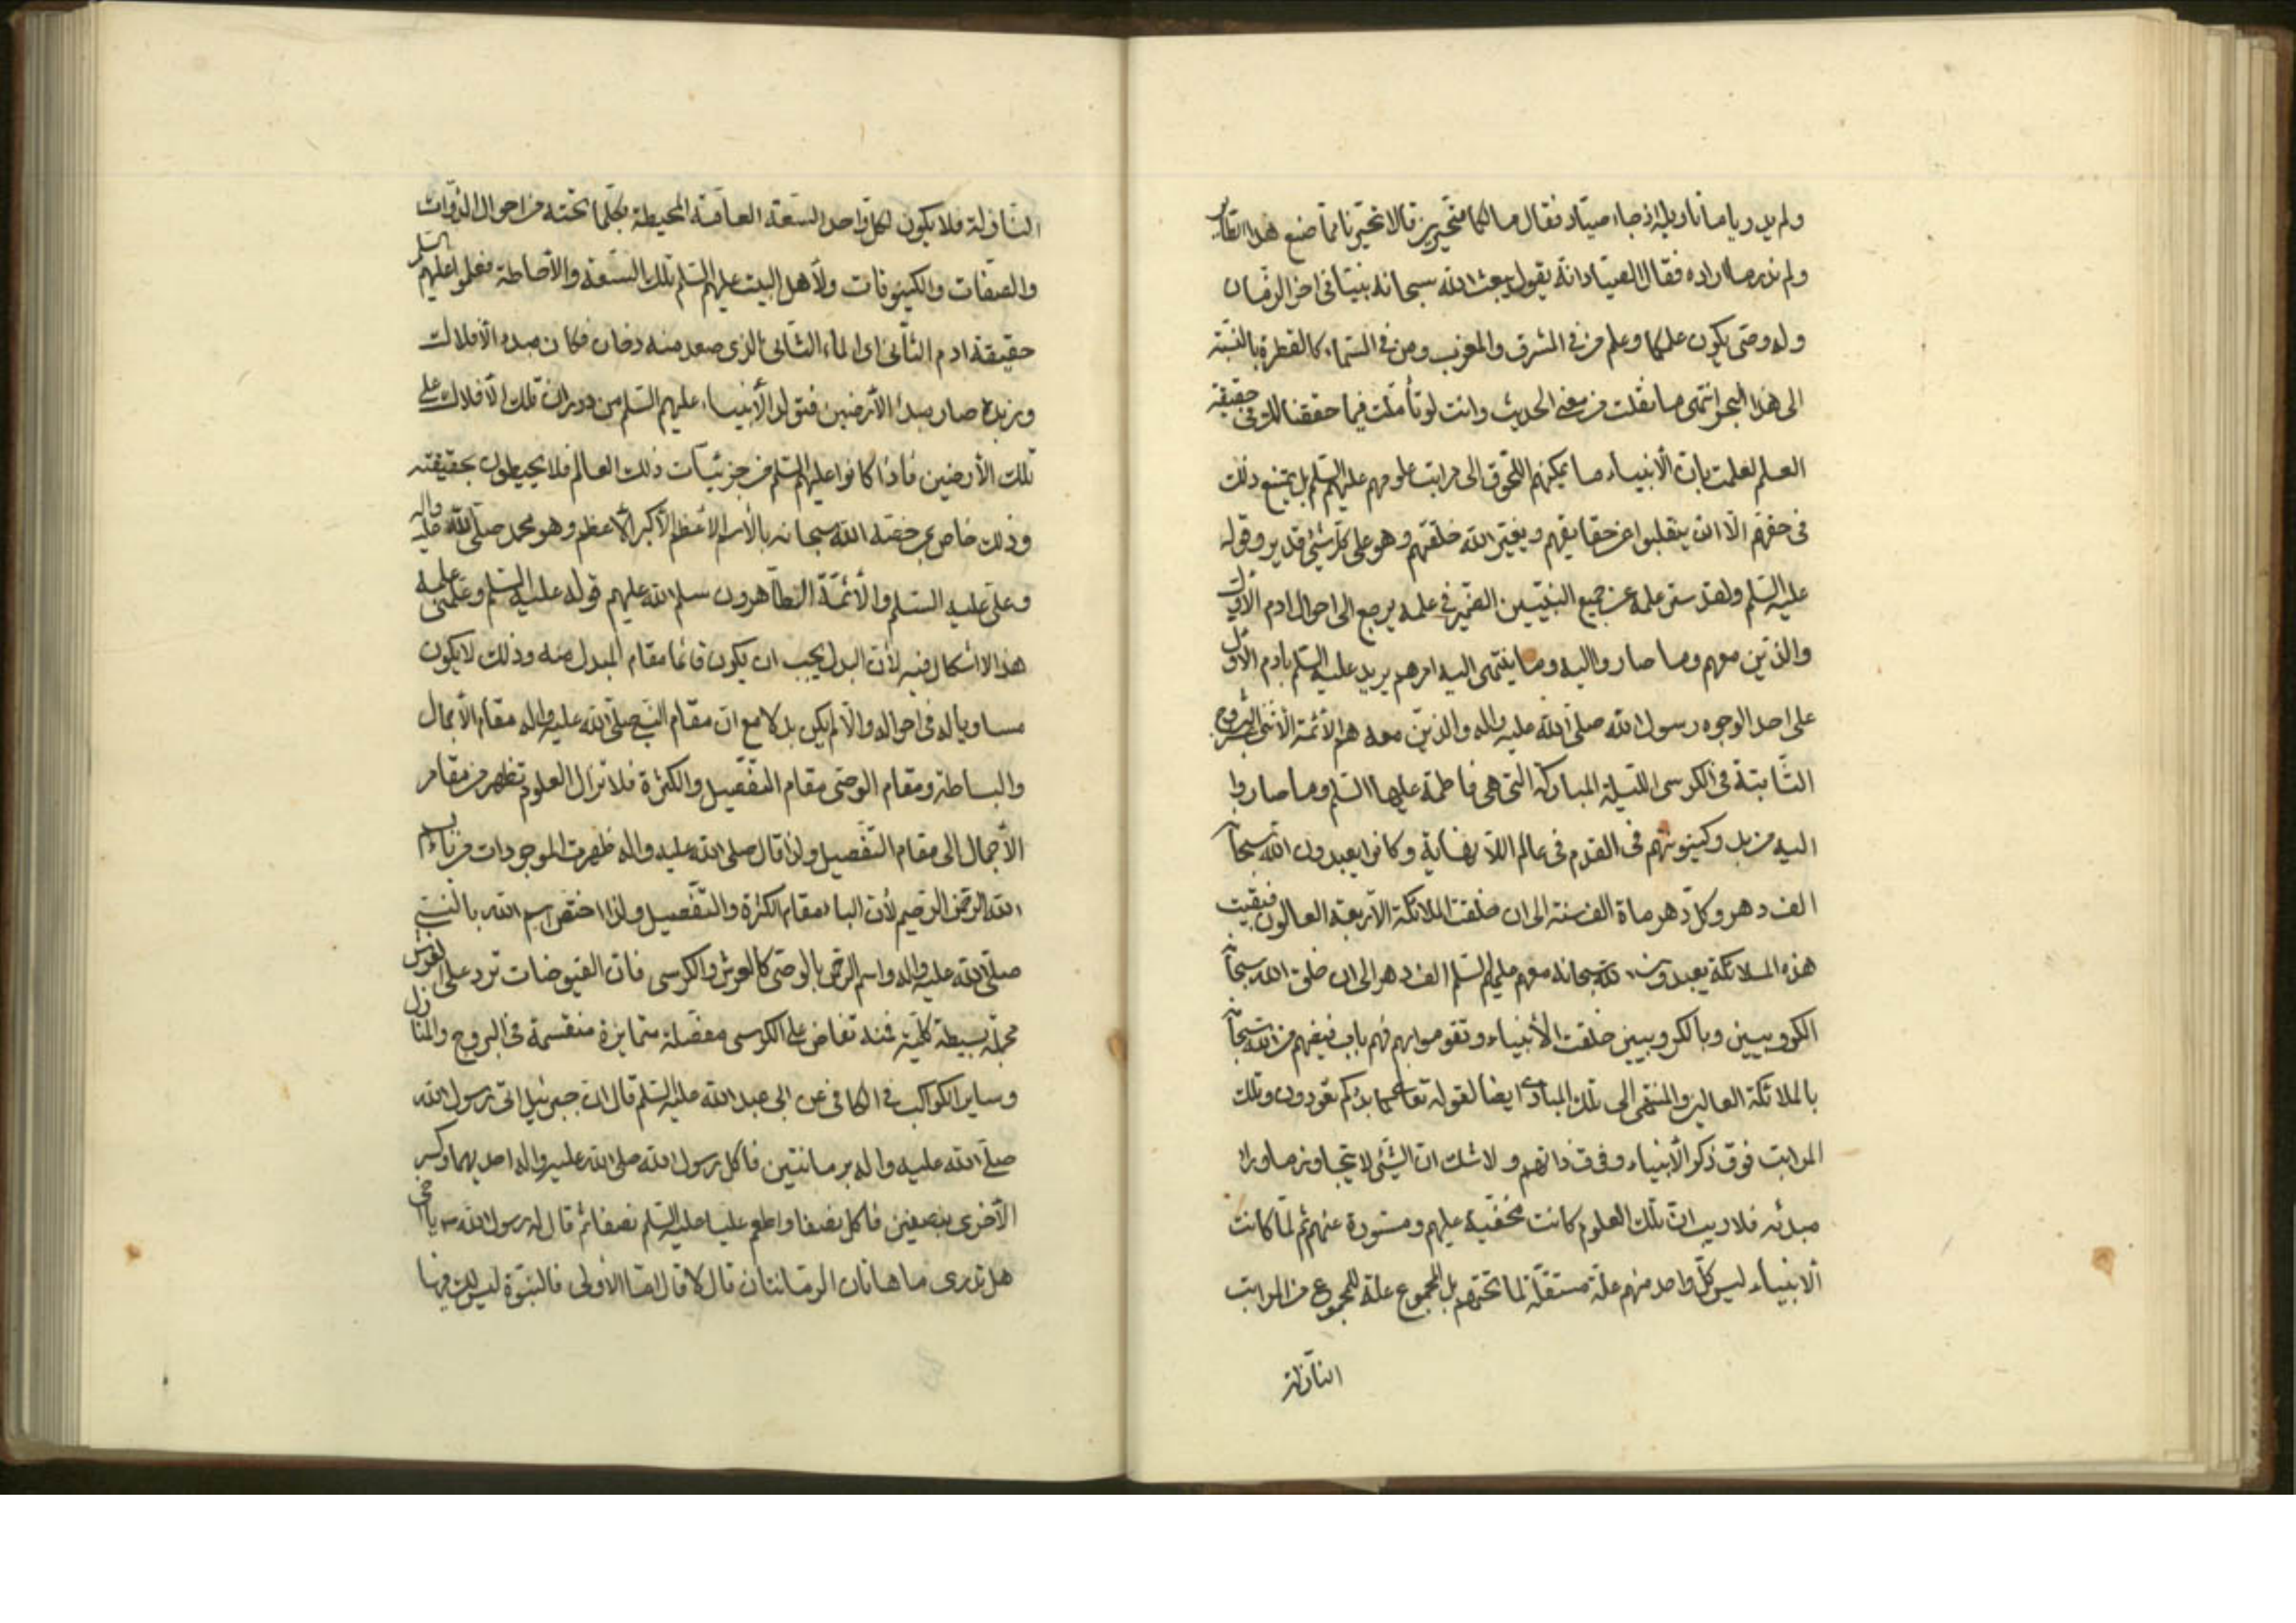 ولم يدريا ما تاويله اذ جاء صيّاد فقال ما لكما متحيرين قالا تحيّرنا ممّا صنع هذا الطاير
ولم ندر ما اراده فقال الصيّاد انّه يقول يبعث الله سبحانه نبيّا فى اخر الزّمان
وله وصى يكون علمكما وعلم من فى المشرق والمغرب ومن فى السّماء كالقطرة بالنّسبة
الى هذا البحر انتهى ما نقلت من معنى الحديث وانت لو تأمّلت فيما حققنا لك فى حقيقة
العلم لعلمت بانّ الأنبياء ما يمكنهم اللّحوق الى مراتب علومهم عليهم السّلم بل يمتنع ذلك
فى حقّهم الّا ان ينقلبوا عن حقايقهم ويغيّر الله خلقتهم وهو على كلّ شئ قدير وقوله
عليه السّلم ولقد ستر علمه عن جميع النبيّين الضّمير فى علمه يرجع الى احوال ادم الأوّل
والذّين معهم وما صاروا اليه وما ينتهى اليه امرهم يريد عليه السّلم بادم الأوّل
على احد الوجوه رسول الله صلّى الله عليه واله والذّين معه هم الأئمّة الأثنى عشر البروج
الثّابتة فى الكرسى اللّيلة المباركة التّى هى فاطمة عليها السّلم وما صاروا
اليه من بدو كينونتهم فى القدم فى عالم اللّا نهاية وكانوا يعبدون الله سبحانه
الف دهر وكلّ دهر ماة الف سنة الى ان خلقت الملائكة الأربعة العالون فبقيت
هذه الملائكة يعبدون الله سبحانه معهم عليهم السّلم الف دهر الى ان خلق الله سبحانه
الكروبيين وبالكروبيين خلقت الأنبياء وتقوموا بهم فهم باب فيضهم من الله سبحانه
بالملائكة العالين والمنتهى الى تلك المبادى ايضا لقوله تعا كما بدءكم تعودون وتلك
المراتب فوق ذكر الأنبياء وفوق ذاتهم ولا شك انّ الشّئ لا يتجاوز ما وراء
مبدئه فلا ريب انّ تلك العلوم كانت مخفيّة عليهم ومستورة عنهم ثم لمّا كانت
الأنبياء ليس كلّ واحد منهم علّة مستقلّة لما تحتهم بل المجموع علّة للمجموع من المراتب
النّازلة
النّازلة فلا يكون لكلّ واحد السّعة العامّة المحيطة بكلّ ما تحته من احوال الذّوات
والصّفات والكينونات ولأهل البيت عليهم السّلم تلك السّعة والأحاطة فعلموا عليهم السّلم
حقيقة ادم الثّانى اى الماء الثّانى الّذى صعد منه دخان فكان مبدء الأفلاك
وزبدة صار مبدء الأرضين فتولد الأنبياء عليهم السّلم من دوران تلك الأفلاك على
تلك الأرضين فأذا كانوا عليهم السّلم من جزئيّات ذلك العالم فلا يحيطون بحقيقته
وذلك خاص بمن خصّه الله سبحانه بالأسم الاعظم الأكبر الأعظم وهو محمد صلّى الله عليه واله
وعلى عليه السّلم والأئمّة الطّاهرون سلم الله عليهم قوله عليه السّلم وعلّمنى علمه
هذا لا اشكال فيه لأنّ البدل يجب ان يكون قائما مقام المبدل منه وذلك لا يكون
مساويا له فى احواله والّا لم يكن بدلا مع انّ مقام النبى صلّى الله عليه واله مقام الأجمال
والبساطة ومقام الوصىّ مقام التّفصيل والكثرة فلا تزال العلوم تظهر من مقام
الأجمال الى مقام التّفصيل ولذا قال صلى الله عليه واله ظهرت الموجودات من باء بسم
الله الرّحمن الرّحيم لأنّ الباء مقام الكثرة والتّفصيل ولذا اختصّ اسم الله بالنّبى
صلّى الله عليه واله واسم الرّحمن بالوصىّ كالعرش والكرسى فانّ الفيوضات ترد على العرش
مجملة بسيطة كليّة فمنه تفاض على الكرسى مفصّلة متمايزة منقسمة فى البروج والمنازل
وساير الكواكب فى الكافى عن ابى عبد الله عليه السّلم قال انّ جبرئيل اتى رسول الله
صلّى الله عليه واله برمانتين فاكل رسول الله صلى الله عليه واله احديهما وكسر
الأخرى بنصفين فاكل نصفا واطعم عليا عليه السّلم نصفا ثم قال له رسول الله ص يا اخى
هل تدرى ما هاتان الرمانتان قال لا قال امّا الأولى فالنبوّة ليس لك فيها